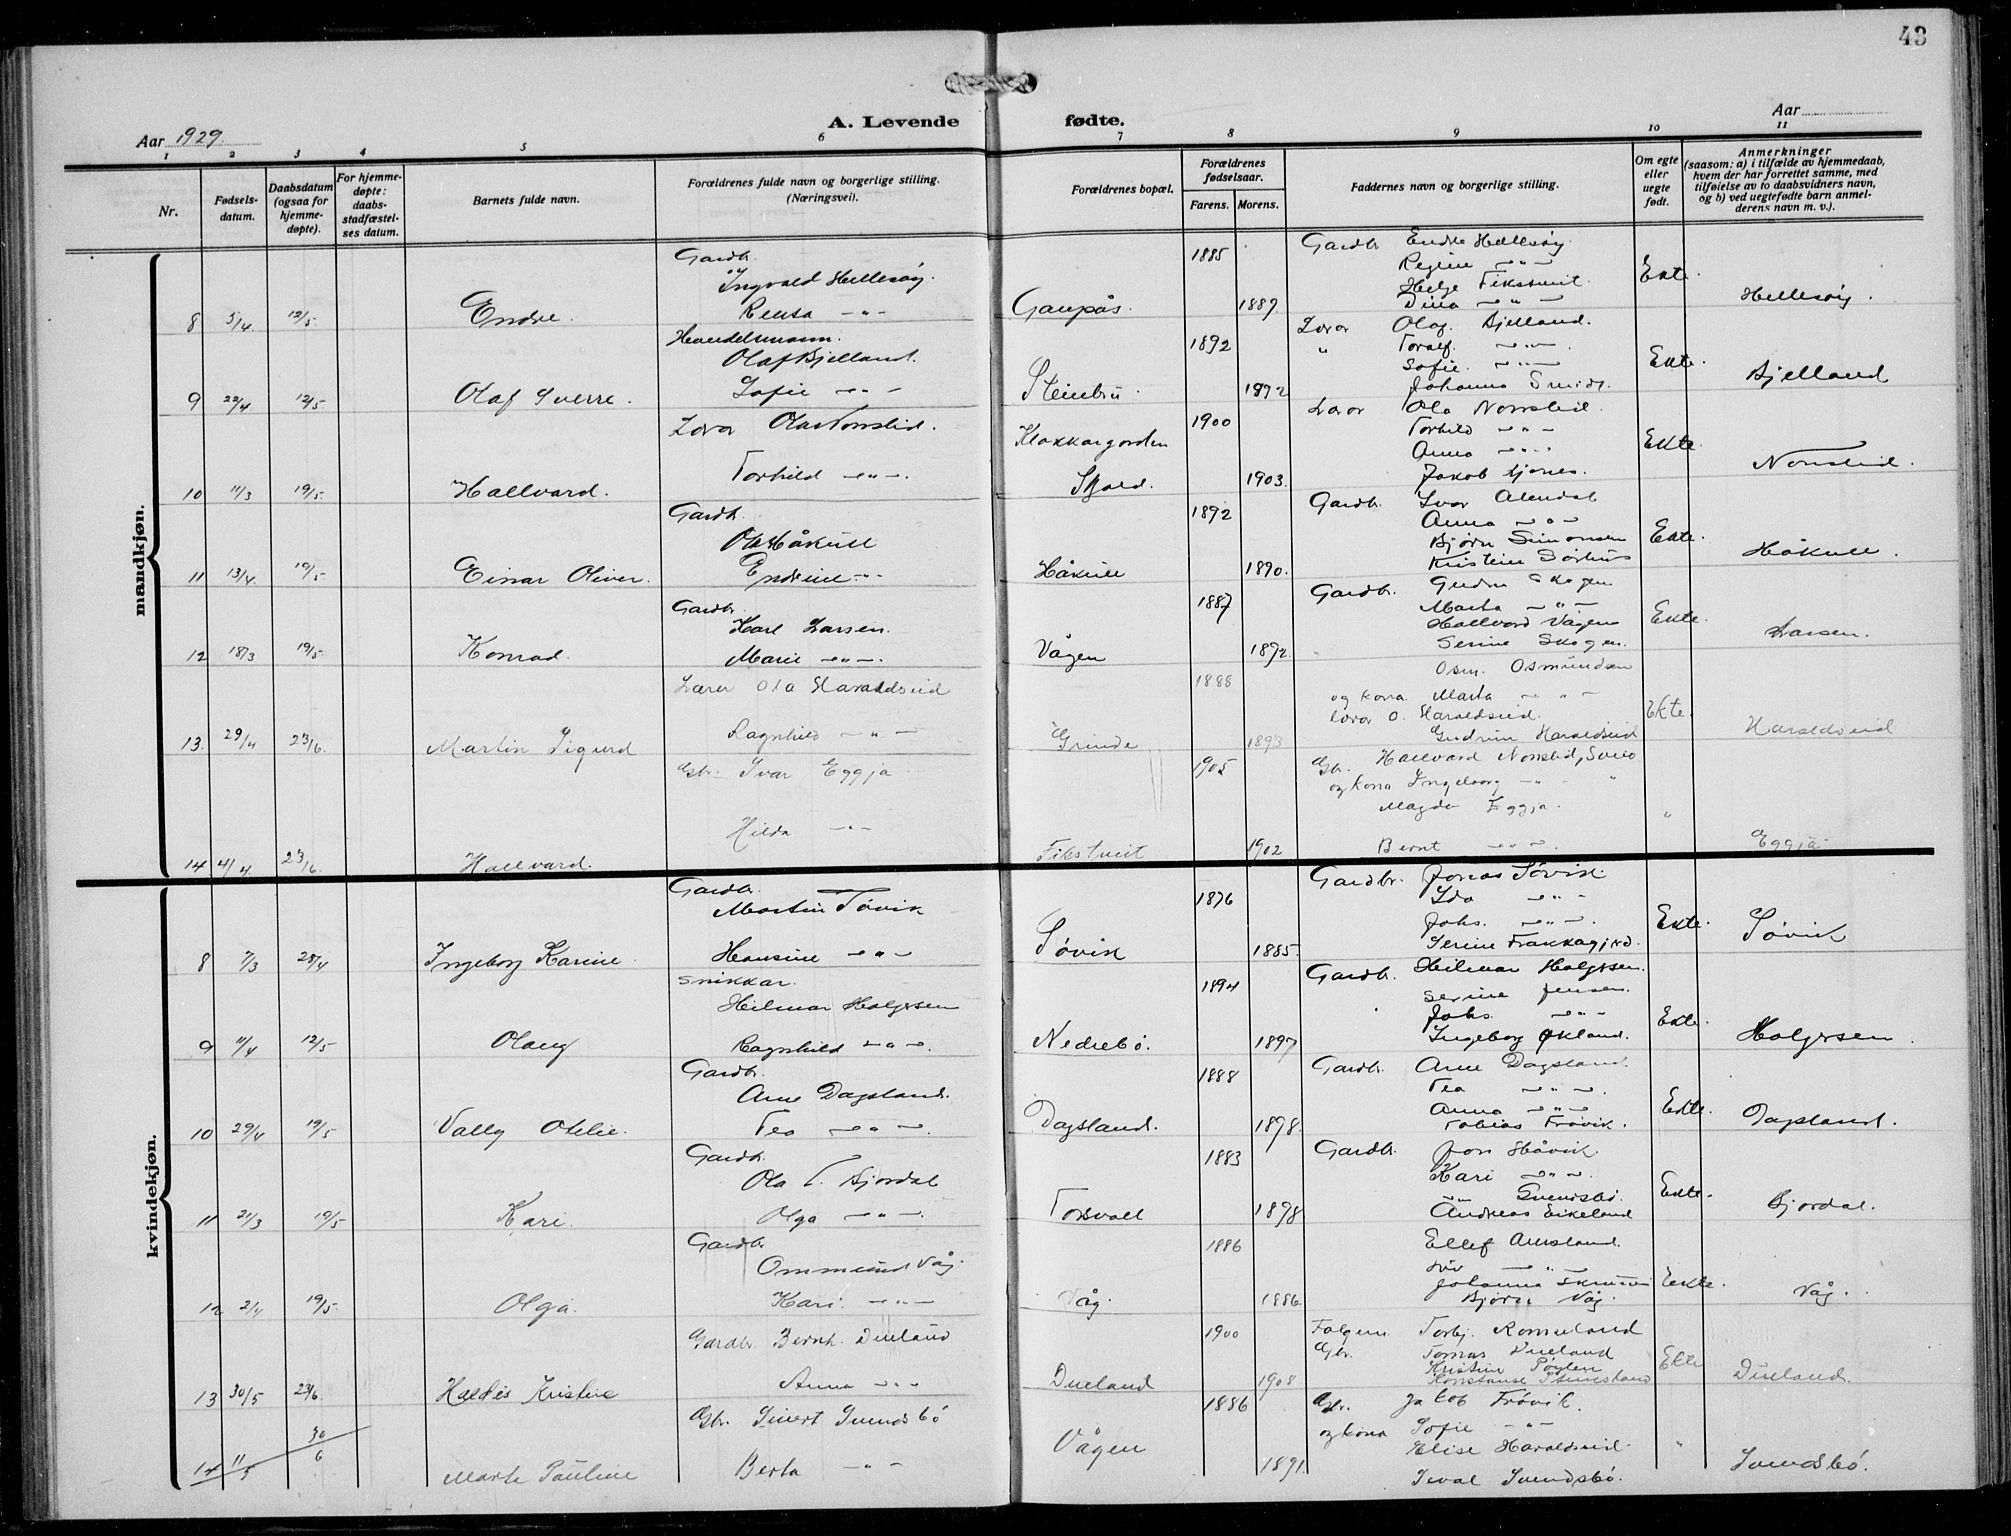 43
Aar 1929.
A. Levende fødte.
Aar
1 2 3 4 5 6 7 8 9 10 11
Nr.
Fødsels-
datum.
Daabsdatum
(ogsaa for
hjemme-
døpte).
For hjemme-
døpte:
daabs-
stadfæstel-
ses datum.
Barnets fulde navn.
Forældrenes fulde navn og borgerlige stilling.
(Næringsvei).
Forældrenes bopæl.
Forældrenes
fødselsaar.
Farens. Morens.
Faddernes navn og borgerlige stilling.
Om egte
eller
uegte
født.
Anmerkninger
(saasom: a) i tilfælde av hjemmedaab,
hvem der har forrettet samme, med
tilføielse av to daabsvidners navn,
og b) ved uegtefødte barn anmel-
derens navn m. v.).
mandkjøn.
Gardbr. 1885 Gardbr. Endre Hellesøy.
Ingvald Hellesøy. Regine -"-
Helge Fikstveit Ekte.
8 5/4. 12/5 Endre. Rensa -"- Gaupås. 1887. Dina -"- Hellesøy.
Handelsmann. 1892 Lærar Olaf Bjelland.
Olaf Bjelland. " Toralf. -"-
Sofie. -"- Ekte.
9 22/4 12/5. Olaf Sverre. Sofie -"- Steinbru. 1892 Johanna Smidt. Bjelland
Lærar Ola Nonslid. Klokkargarden 1900 Lærar Ola Nonslid.
Torhild -"-
Anna -"- Ekte.
10 11/3 19/5. Hallvard. Torhild -"-. Skjold. 1903. Jakob Bjones. Nonslid.
Gardbr. 1892 Gardbr. Ivar Alendal
Ola Håkull Anna -"-
Bjørn Simonsen Ekte.
11 13/4. 19/5 Einar Oliver. Endrine -"- Håkull 1890. Kristine Sørhus Håkull.
Gardbr. 1887 Gardbr. Gudm Skogen
Karl Larsen. Marta -"-
Hallvard Vågen Ekte.
12 18/3 19/5 Konrad. Marie -"-. Vågen 1892. Serine Skogen. Larsen.
Lærer Ola Haraldseid 1888 Osm. Osmundsen
og kona Marta -"-
lærar O. Haraldseid. Ekte.
13. 29/4 23/6. Martin Sigurd Ragnhild -"- Grinde 1893 Gudrun Haraldseid Haraldseid
Gbr. Ivar Eggja 1905 Gbr. Hallvard Nonslid, Sveio
og kona Ingeborg -"- "
Magda Eggja. "
14 4/4. 23/6. Hallvard. Hilda -"- Fikstveit 1902 Bernt -"-. Eggja
kvindekjøn.
Gardbr. 1876 Gardbr. Jonas Søvik.
Martin Søvik Ida -"-
Johs. -"-. Ekte.
8 7/3 28/4 Ingeborg Karine. Hansine -"- Søvik 1885. Serine Frakkagjerd. Søvik
Snikkar. 1894 Gardbr. Hilmar Holgersen.
Hilmar Holgersen Serine Jensen.
Johs. -"- Ekte.
9 11/4 12/5 Olaug Ragnhild -"-. Nedrebø. 1897 Ingeborg Økland. Holgersen.
Gardbr. 1888 Gardbr. Arne Dagsland.
Arne Dagsland. Tea -"-.
Anna -"- Ekte.
10 29/4 19/5 Vally Otelie. Tea -"-. Dagsland. 1898. Tobias Frøvik. Dagsland.
Gardbr. 1883 Gardbr. Jon Håvik.
Ola T. Bjordal Kari -"-.
Svendsbø. Ekte.
11 21/3 19/5 Kari. Olga -"-. Torsvoll 1898 Andreas Eikeland Bjordal.
Gardbr. 1886 Ellef Amsland.
Ommund Våg. Siv -"-
Johanna Ekte.
12 2/4 19/5. Olga. Kari. -"- Våg. 1886. Bjørn Våg. Våg.
Gardbr. Bernh. Dueland 1900 Torbj. Romseland
Gbr. Tomas Dueland
Kristine Ekte
13 30/5 23/6. Haldis Kristine Anna -"- Dueland 1908 Konstanse Dueland.
Gbr. Sivert Svendsbö 1886 Gbr. Jakob Frøvik.
og kona Sofie -"-
30 Elise Haraldseid. "
14 11/5 6 Marta Pauline Berta -"- Vågen 1891. Seval Svendsbö. Svendsbö.